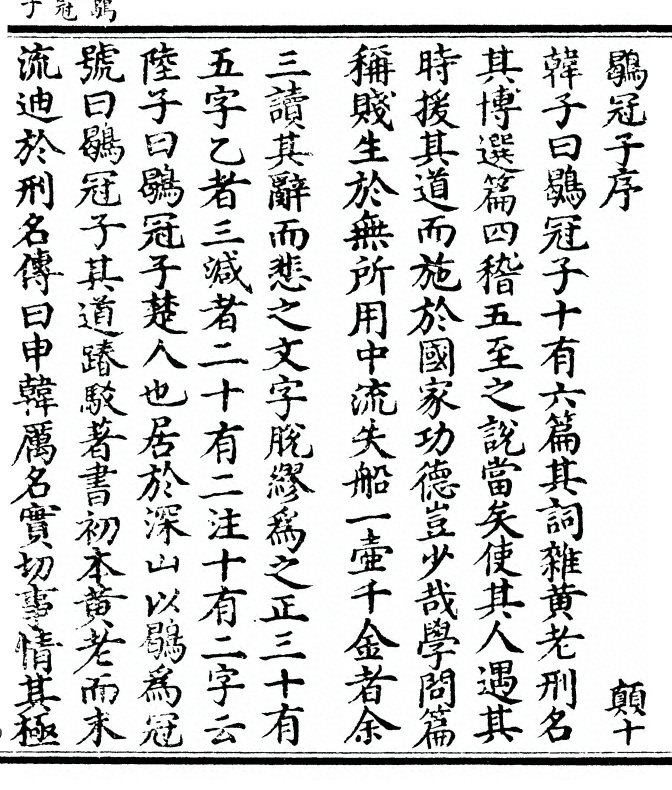 鶡冠子
鶡冠子序 顛十
韓子曰鶡冠子十有六篇其詞雜黃老刑名
其博選篇四稽五至之說當矣使其人遇其
時援其道而施於國家功德豈少哉學問篇
稱賤生於無所用中流失船一壷千金者余
三讀其辭而悲之文字脫繆爲之正三十有
五字乙者三減者二十有二注十有二字云
陸子曰鶡冠子楚人也居於深山以鶡爲冠
號曰鶡冠子其道踳駁著書初本黃老而末
流迪於刑名傳曰申韓厲名實切事情其極